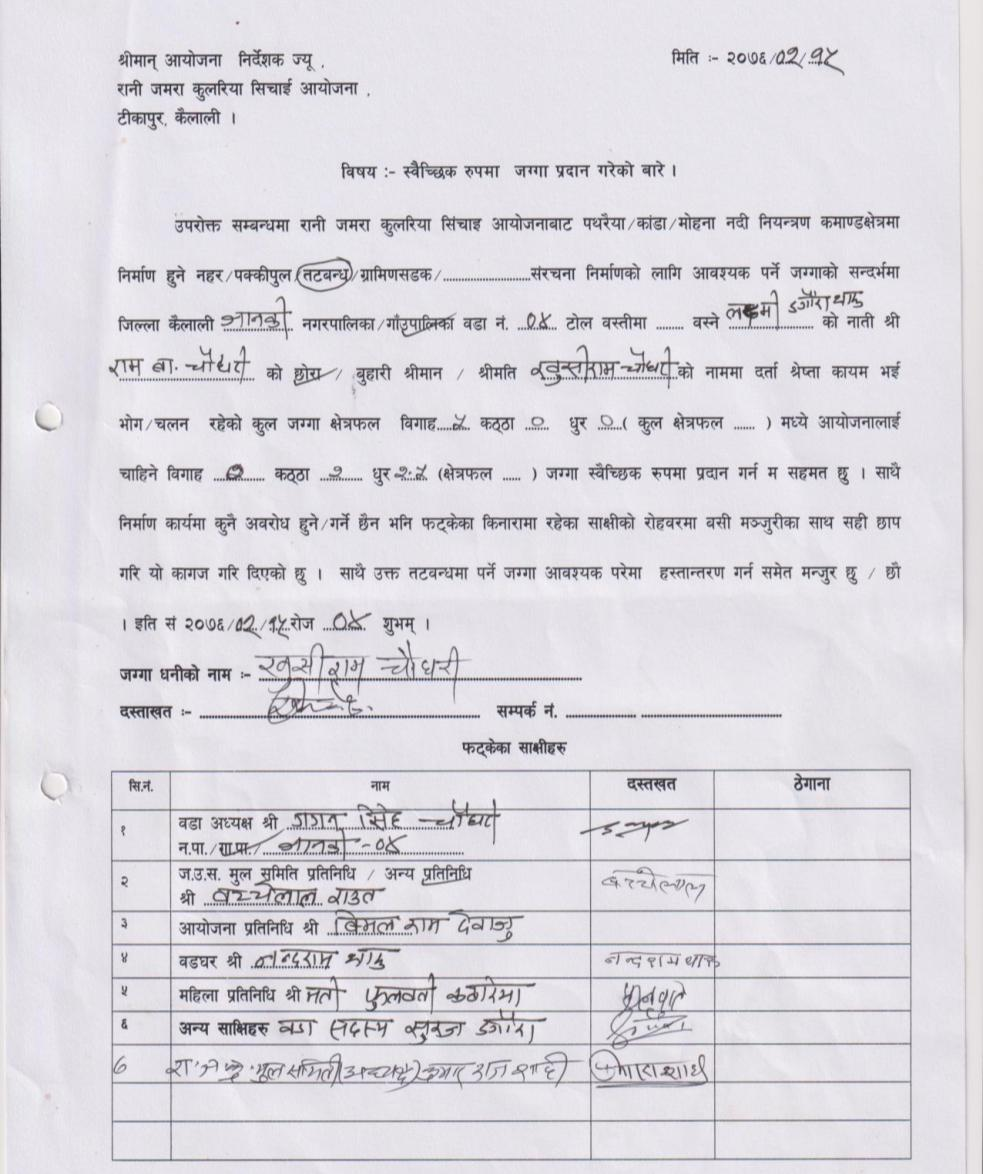 श्रीमान् आयोजना निर्देशक ज्यू ,
मिति :- २०७६/०२/१५
रानी जमरा कुलरिया सिचाई आयोजना ,
टीकापुर, कैलाली ।
विषय :- स्वैच्छिक रुपमा जग्गा प्रदान गरेको बारे ।
उपरोक्त सम्बन्धमा रानी जमरा कुलरिया सिंचाइ आयोजनाबाट पथरैया/कांडा/मोहना नदी नियन्त्रण कमाण्डक्षेत्रमा
निर्माण हुने नहर/पक्कीपुल/तटबन्ध/ग्रामिणसडक/....................संरचना निर्माणको लागि आवश्यक पर्ने जग्गाको सन्दर्भमा
जिल्ला कैलाली जानकी नगरपालिका/गाँउपालिका वडा नं. ०४ टोल वस्तीमा ........ वस्ने लक्ष्मी डगौरा थारु को नाती श्री
राम ब. चौधरी को छोरा/ बुहारी श्रीमान / श्रीमति खुसीराम चौधरी को नाममा दर्ता श्रेष्ता कायम भई
भोग/चलन रहेको कुल जग्गा क्षेत्रफल विगाह कठ्ठा ० धुर ० ( कुल क्षेत्रफल ...... ) मध्ये आयोजनालाई
चाहिने विगाह ० कठ्ठा २ धुर (क्षेत्रफल ..... ) जग्गा स्वैच्छिक रुपमा प्रदान गर्न म सहमत छु । साथै
निर्माण कार्यमा कुनै अवरोध हुने/गर्ने छैन भनि फट्केका किनारामा रहेका साक्षीको रोहवरमा बसी मञ्जुरीका साथ सही छाप
गरि यो कागज गरि दिएको छु । साथै उक्त तटवन्धमा पर्ने जग्गा आवश्यक परेमा हस्तान्तरण गर्न समेत मन्जुर छु / छौ
। इति सं २०७६/०२/१५ रोज ०४ शुभम् ।
जग्गा धनीको नाम :- खुसीराम चौधरी
दस्ताखत :- ........................ सम्पर्क नं. ........................
फट्केका साक्षीहरु
सि.नं. नाम दस्तखत ठेगाना
१ वडा अध्यक्ष श्री गगन सिंह चौधरी
न.पा./गा.पा./ जानकी -०४
२ ज.उ.स. मुल समिति प्रतिनिधि / अन्य प्रतिनिधि
श्री बच्चेलाल राउत बच्चेलाल
३ आयोजना प्रतिनिधि श्री बिमल राम देवाजु
४ वडघर श्री नन्दराम थारु नन्दराम थारु
५ महिला प्रतिनिधि श्री मती फुलवती कठरिया फुलवति
६ अन्य साक्षिहरु वडा सदस्य सुरज डगौरा
७ मूल समिति (अध्यक्ष) कुमार राज शाही